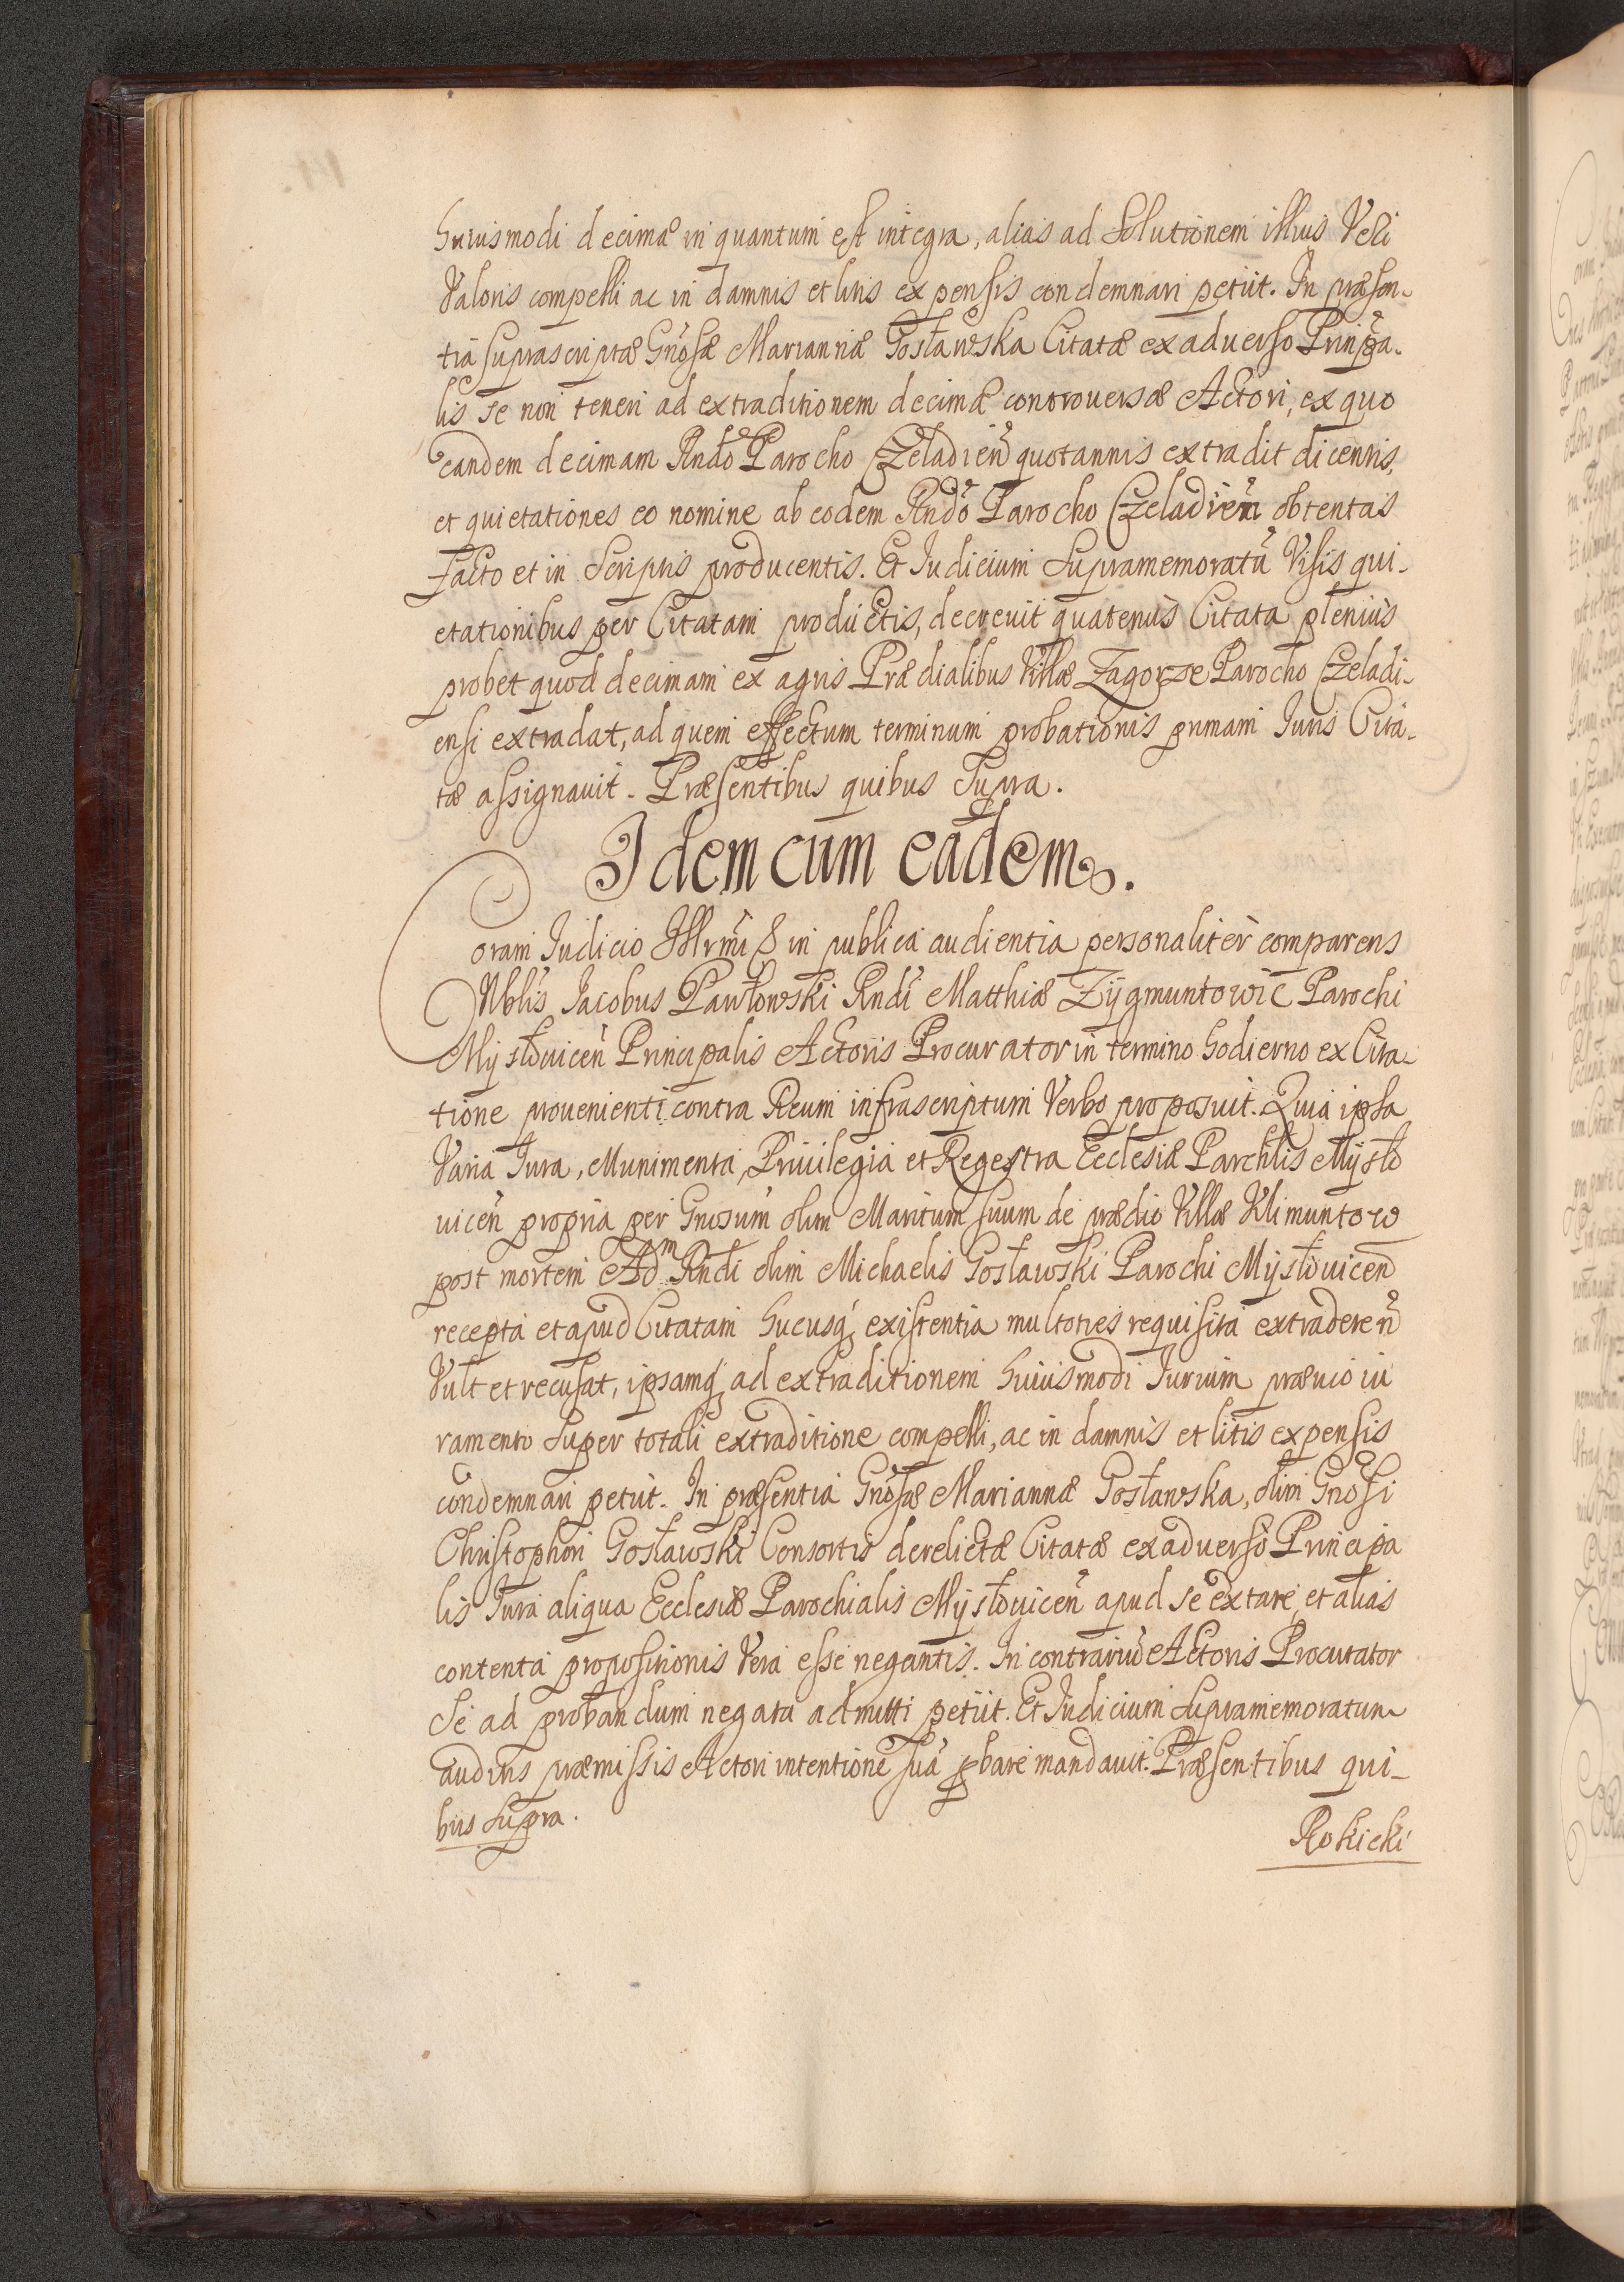 huiusmodi decimæ in quantum est integra, alias ad Solutionem illius Veri
Valoris compelli ac in damnis et litis expensis condemnari petiit. In præsen-
tia suprascriptæ Gnosæ Mariannæ Gosławska Citatæ ex aduerso Principa-
lis se non teneri ad extraditionem decimæ controuersæ Actori, ex quo
eandem decimam Rndo Parocho Czeladień quotannis extradit dicentis,
et quietationes eo nomine ab eodem Rndo Parocho Czeladień obtentas
facto et in Scriptis producentis. Et Iudicium Supramemoratū Visis qui-
etationibus per Citatam productis, decreuit quatenus Citata plenius
probet quod decimam ex agris Prædialibus Villæ Zagorze Parocho Czeladi-
ensi extradat, ad quem effectum terminum probationis primam Iuris Cita-
tæ assignauit. Præsentibus quibus Supra.
Idem cum eadem.
Coram Iudicio Illrmi & in publica audientia personalitèr comparens
Nblis Iacobus Pawłowski Rndi Matthiæ Zÿgmuntowic Parochi
Mÿsłouiceń Principalis Actoris Procurator in termino hodierno ex Cita-
tione prouenienti contra Reum infrascriptum Verbo proposuit. Quia ipsa
Varia Iura, Munimenta, Priuilegia et Regestra Ecclesiæ Parchlis Mÿsło
uiceń propria per Gnosum olim Maritum suum de prædio Villæ Klimuntow
post mortem Adm Rndi olim Michaelis Gosławski Parochi Mÿsłouiceń
recepta et apud Citatam hucusq existentia multoties requisita extradere ñ
Vult et recusat, ipsamq ad extraditionem huiusmodi Iurium præuio iu
ramento Super totali extraditione compelli, ac in damnis et litis expensis
condemnari petiit. In præsentia Gnosæ Mariannæ Gosławska, olim Gnosi
Christophori Gosławski Consortis derelictæ Citatæ ex aduerso Principa
lis Iura aliqua Ecclesiæ Parochialis Mÿsłouiceń apud se extare, et alias
contenta propositionis Vera esse negantis. In contrariū Actoris Procurator
Se ad probandum negata admitti petiit. Et Iudicium Supramemoratum
auditis præmissis Actori intentionē suā pbare mandauit. Præsentibus qui-
bus Supra.
Rokicki